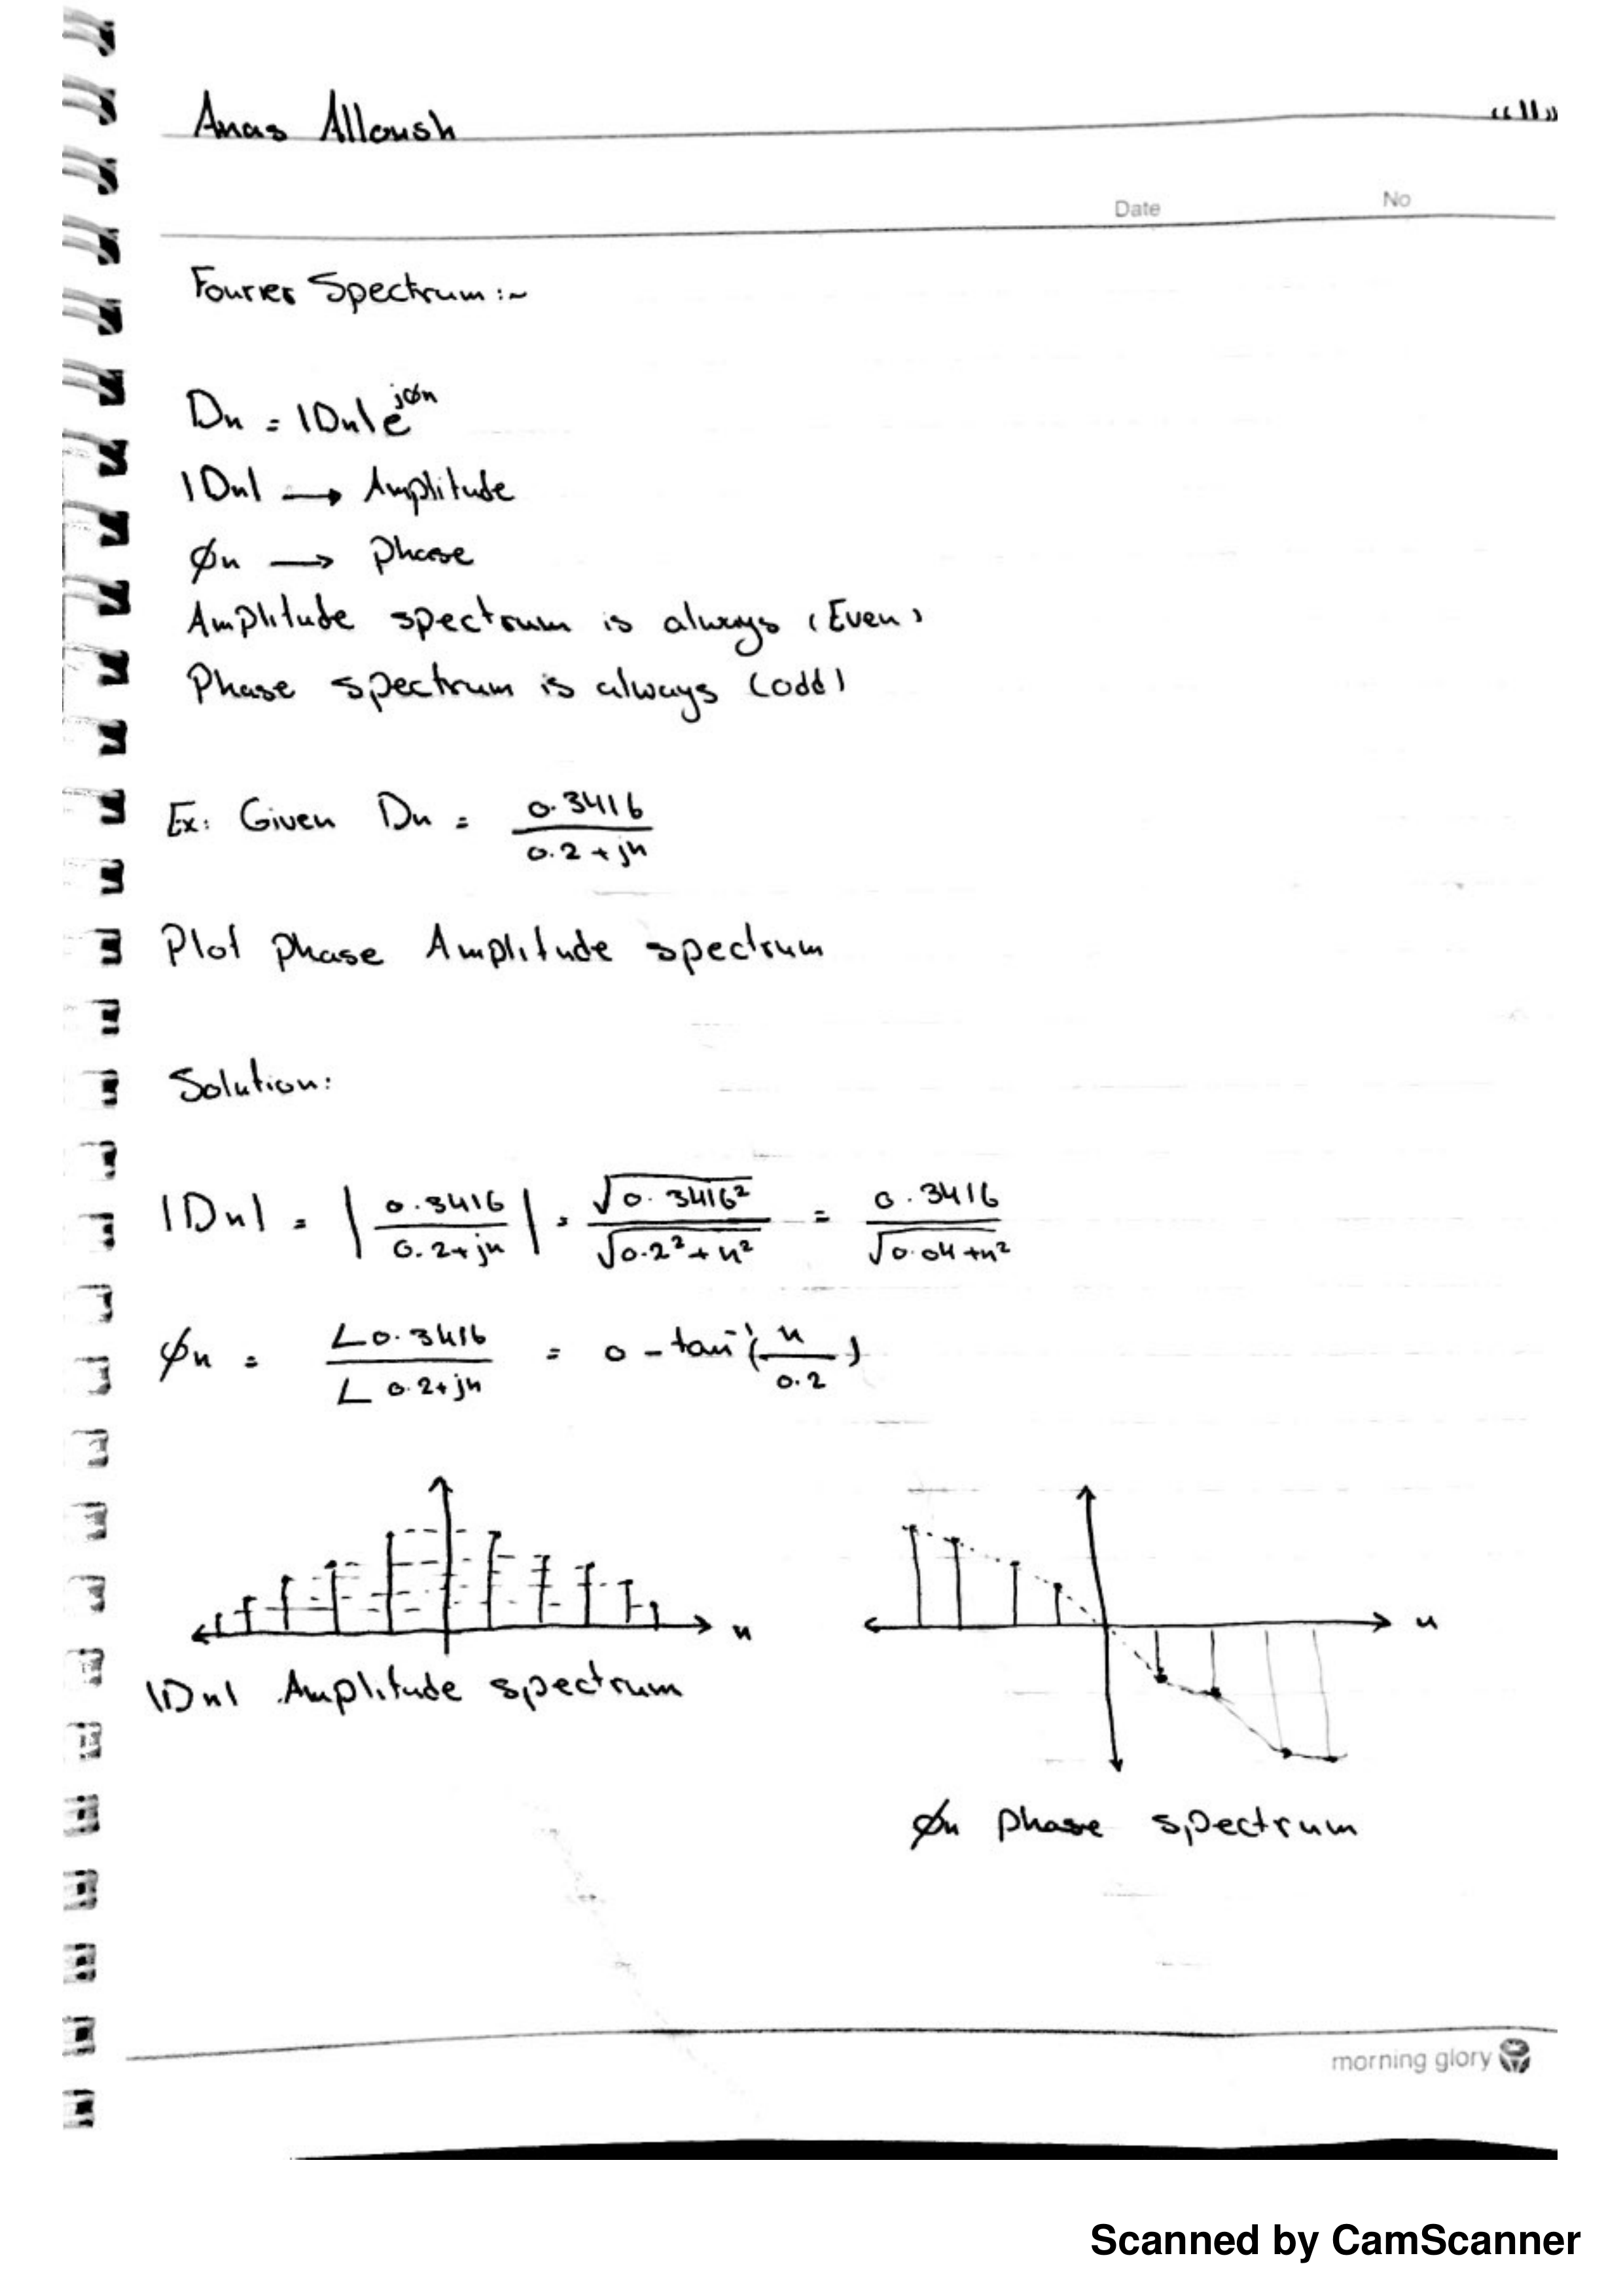 Anas Alloush
"11"
Date No
Fourier Spectrum :~
Dn = |Dn| e^jØn
|Dn| → Amplitude
Øn → Phase
Amplitude spectrum is always (Even)
Phase spectrum is always (odd)
Ex: Given Dn = 0.3416 / 0.2 + jn
Plot phase Amplitude spectrum
Solution:
|Dn| = | 0.3416 / 0.2 + jn | = √0.3416² / √0.2² + n² = 0.3416 / √0.04 + n²
Øn = ∠0.3416 / ∠0.2 + jn = 0 - tan⁻¹( n / 0.2 )
n
n
|Dn| Amplitude spectrum
Øn phase spectrum
morning glory
Scanned by CamScanner